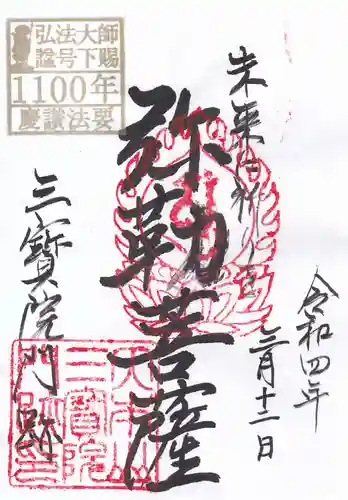 弘法大師
諡号下賜
1100年
慶讃法要
令和四年
三月十二日
弥勒菩薩
三寳院門跡